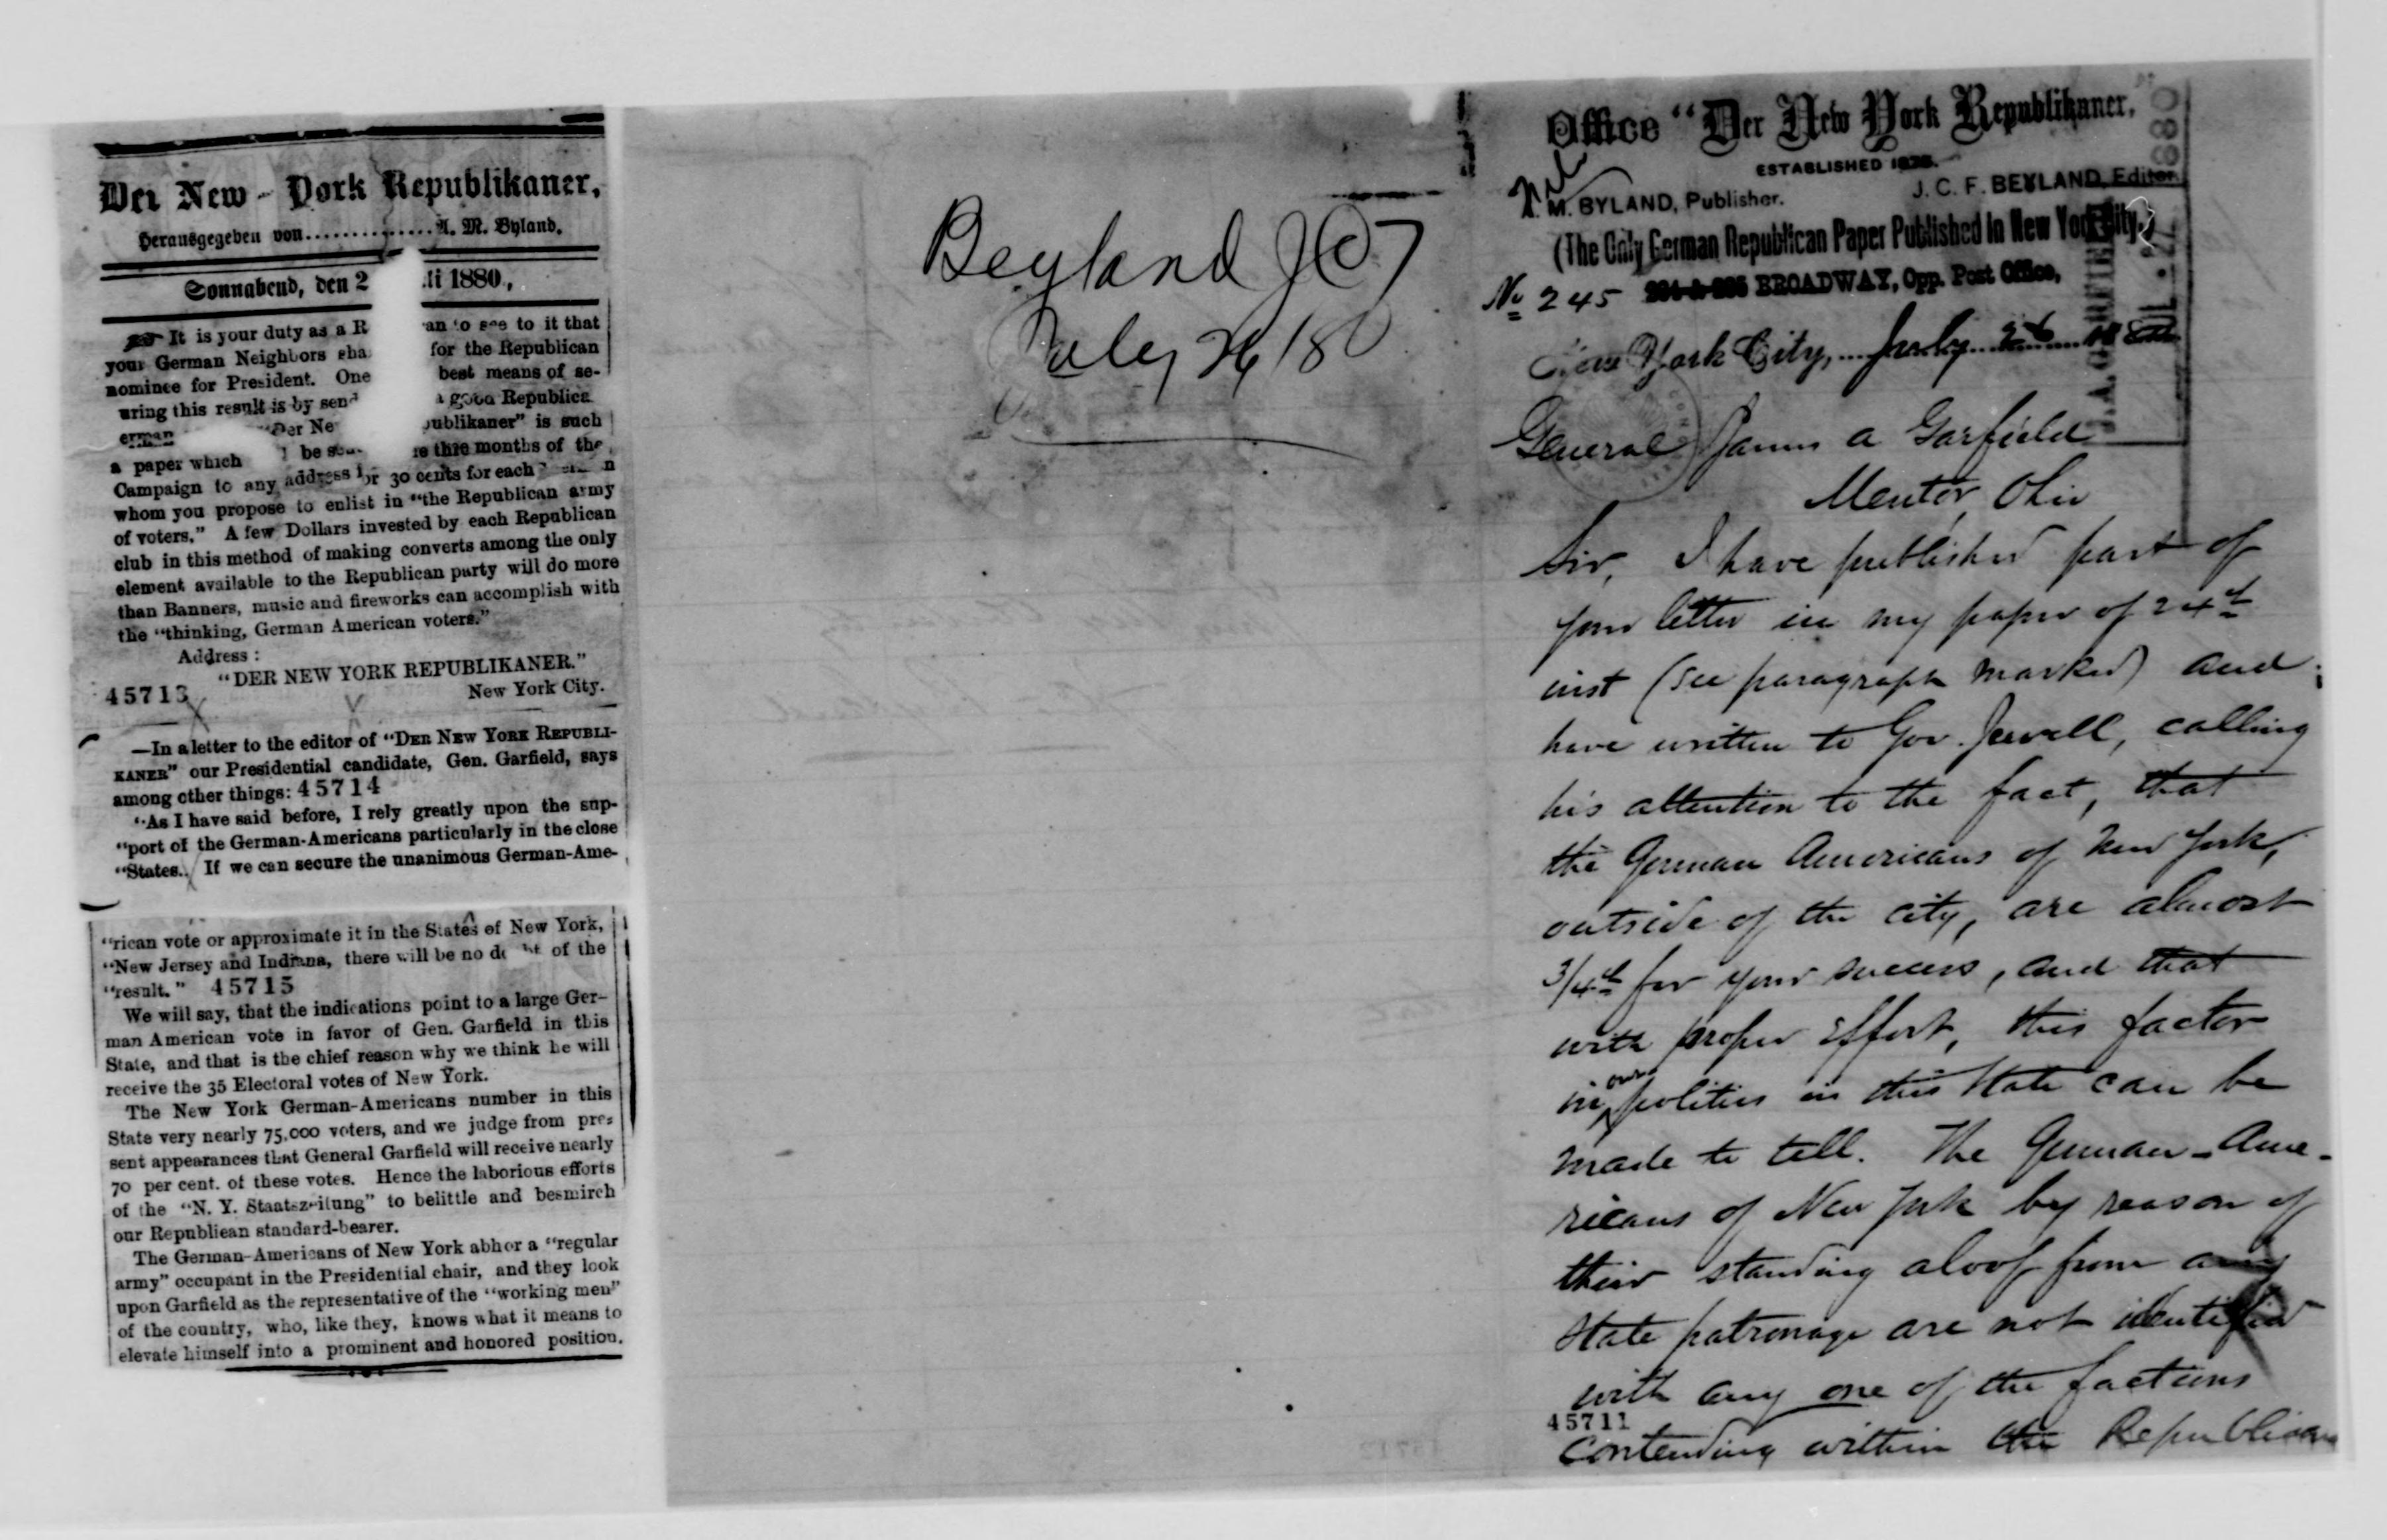 Der New-York Republikaner,
Herausgegeben von..............A. M. Byland.
Sonnabend, den 2 li 1880.,
It is your duty as a R an to see to it that
your German Neighbors sha for the Republican
nominee for President. One best means of se-
uring this result is by send a good Republica
erman "Der Ne publikaner" is such
a paper which be se re thre months of the
Campaign to any address for 30 cents for each n
whom you propose to enlist in "the Republican army
of voters." A few Dollars invested by each Republican
club in this method of making converts among the only
element available to the Republican party will do more
than Banners, music and fireworks can accomplish with
the "thinking, German American voters."
Address :
"DER NEW YORK REPUBLIKANER."
45713 New York City.
—In a letter to the editor of "DER NEW YORK REPUBLI-
KANER" our Presidential candidate, Gen. Garfield, says
among other things: 45714
"As I have said before, I rely greatly upon the sup-
"port of the German-Americans particularly in the close
"States. If we can secure the unanimous German-Ame-
"rican vote or approximate it in the States of New York,
"New Jersey and Indiana, there will be no do bt of the
"result." 45715
We will say, that the indications point to a large Ger-
man American vote in favor of Gen. Garfield in this
State, and that is the chief reason why we think he will
receive the 35 Electoral votes of New York.
The New York German-Americans number in this
State very nearly 75.000 voters, and we judge from pre-
sent appearances that General Garfield will receive nearly
70 per cent. of these votes. Hence the laborious efforts
of the "N. Y. Staatszeitung" to belittle and besmirch
our Republican standard-bearer.
The German-Americans of New York abhor a "regular
army" occupant in the Presidential chair, and they look
upon Garfield as the representative of the "working men"
of the country, who, like they, knows what it means to
elevate himself into a prominent and honored position.
Beyland J C F
July 26/80
Office "Der New York Republikaner,
ESTABLISHED 1876.
M. BYLAND, Publisher. J. C. F. BEYLAND, Editor
(The Only German Republican Paper Published In New York City.)
No 245 BROADWAY, Opp. Post Office,
New York City, July 26 1880
General James A Garfield
Mentor, Ohio
Sir, I have published part of
your letter in my paper of 24th
inst (see paragraph marked) and
have written to Gov. Jewell, calling
his attention to the fact, that
the German Americans of New York,
outside of the city, are almost
3/4th for your success, and that
with proper effort, this factor
in our politics in this State can be
made to tell. The German-Ame-
ricans of New York by reason of
their standing aloof from any
State patronage are not identified
with any one of the factions
45711
contending within the Republican